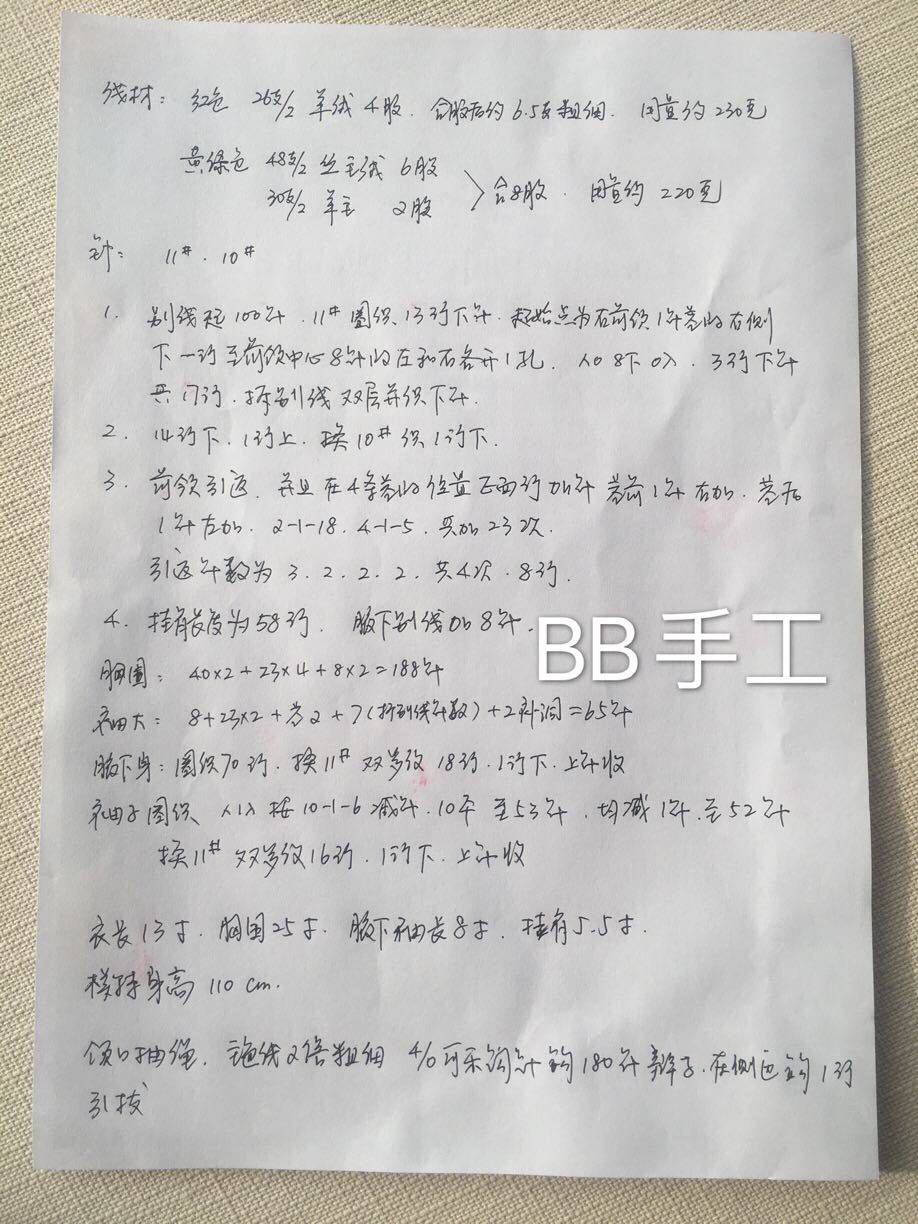 线材: 红色 26支/2 羊绒 4股. 合股后约 6.5支粗细. 用量约 230克
黄绿色 48支/2 丝毛绒 6股
30支/2 羊毛 2股 合8股. 用量约 220克
针: 11#. 10#
1. 别线起100针. 11#圈织13行下针. 起始点为右前领1针茎的右侧
下一行至前领中心8针的左和右各开1孔. 人0 8下 0入. 3行下针
共17行. 拆别线双层并织下针.
2. 14行下. 1行上. 换10#织1行下.
3. 前领引返. 并且在4条茎的位置正面行加针 茎前1针右加. 茎后
1针左加. 2-1-18. 4-1-5. 共加23次.
引返针数为 3. 2. 2. 2. 共4次. 8行.
4. 挂肩长度为58行. 腋下别线加8针.
BB手工
胸围: 40×2+23×4+8×2=188针
衣袖大: 8+23×2+茎2+7(拆别线针数)+2补洞=65针
腋下身: 圈织70行. 换11#双罗纹18行. 1行下. 上针收
袖子圈织 人1入 按10-1-6减针. 10平 至53针. 均减1针. 至52针
换11#双罗纹16行. 1行下. 上针收
衣长13寸. 胸围25寸. 腋下袖长8寸. 挂肩5.5寸.
模特身高 110cm.
领口抽绳. 主色线2倍粗细 4/0可乐钩针钩180针辫子. 在侧边钩1行
引拔